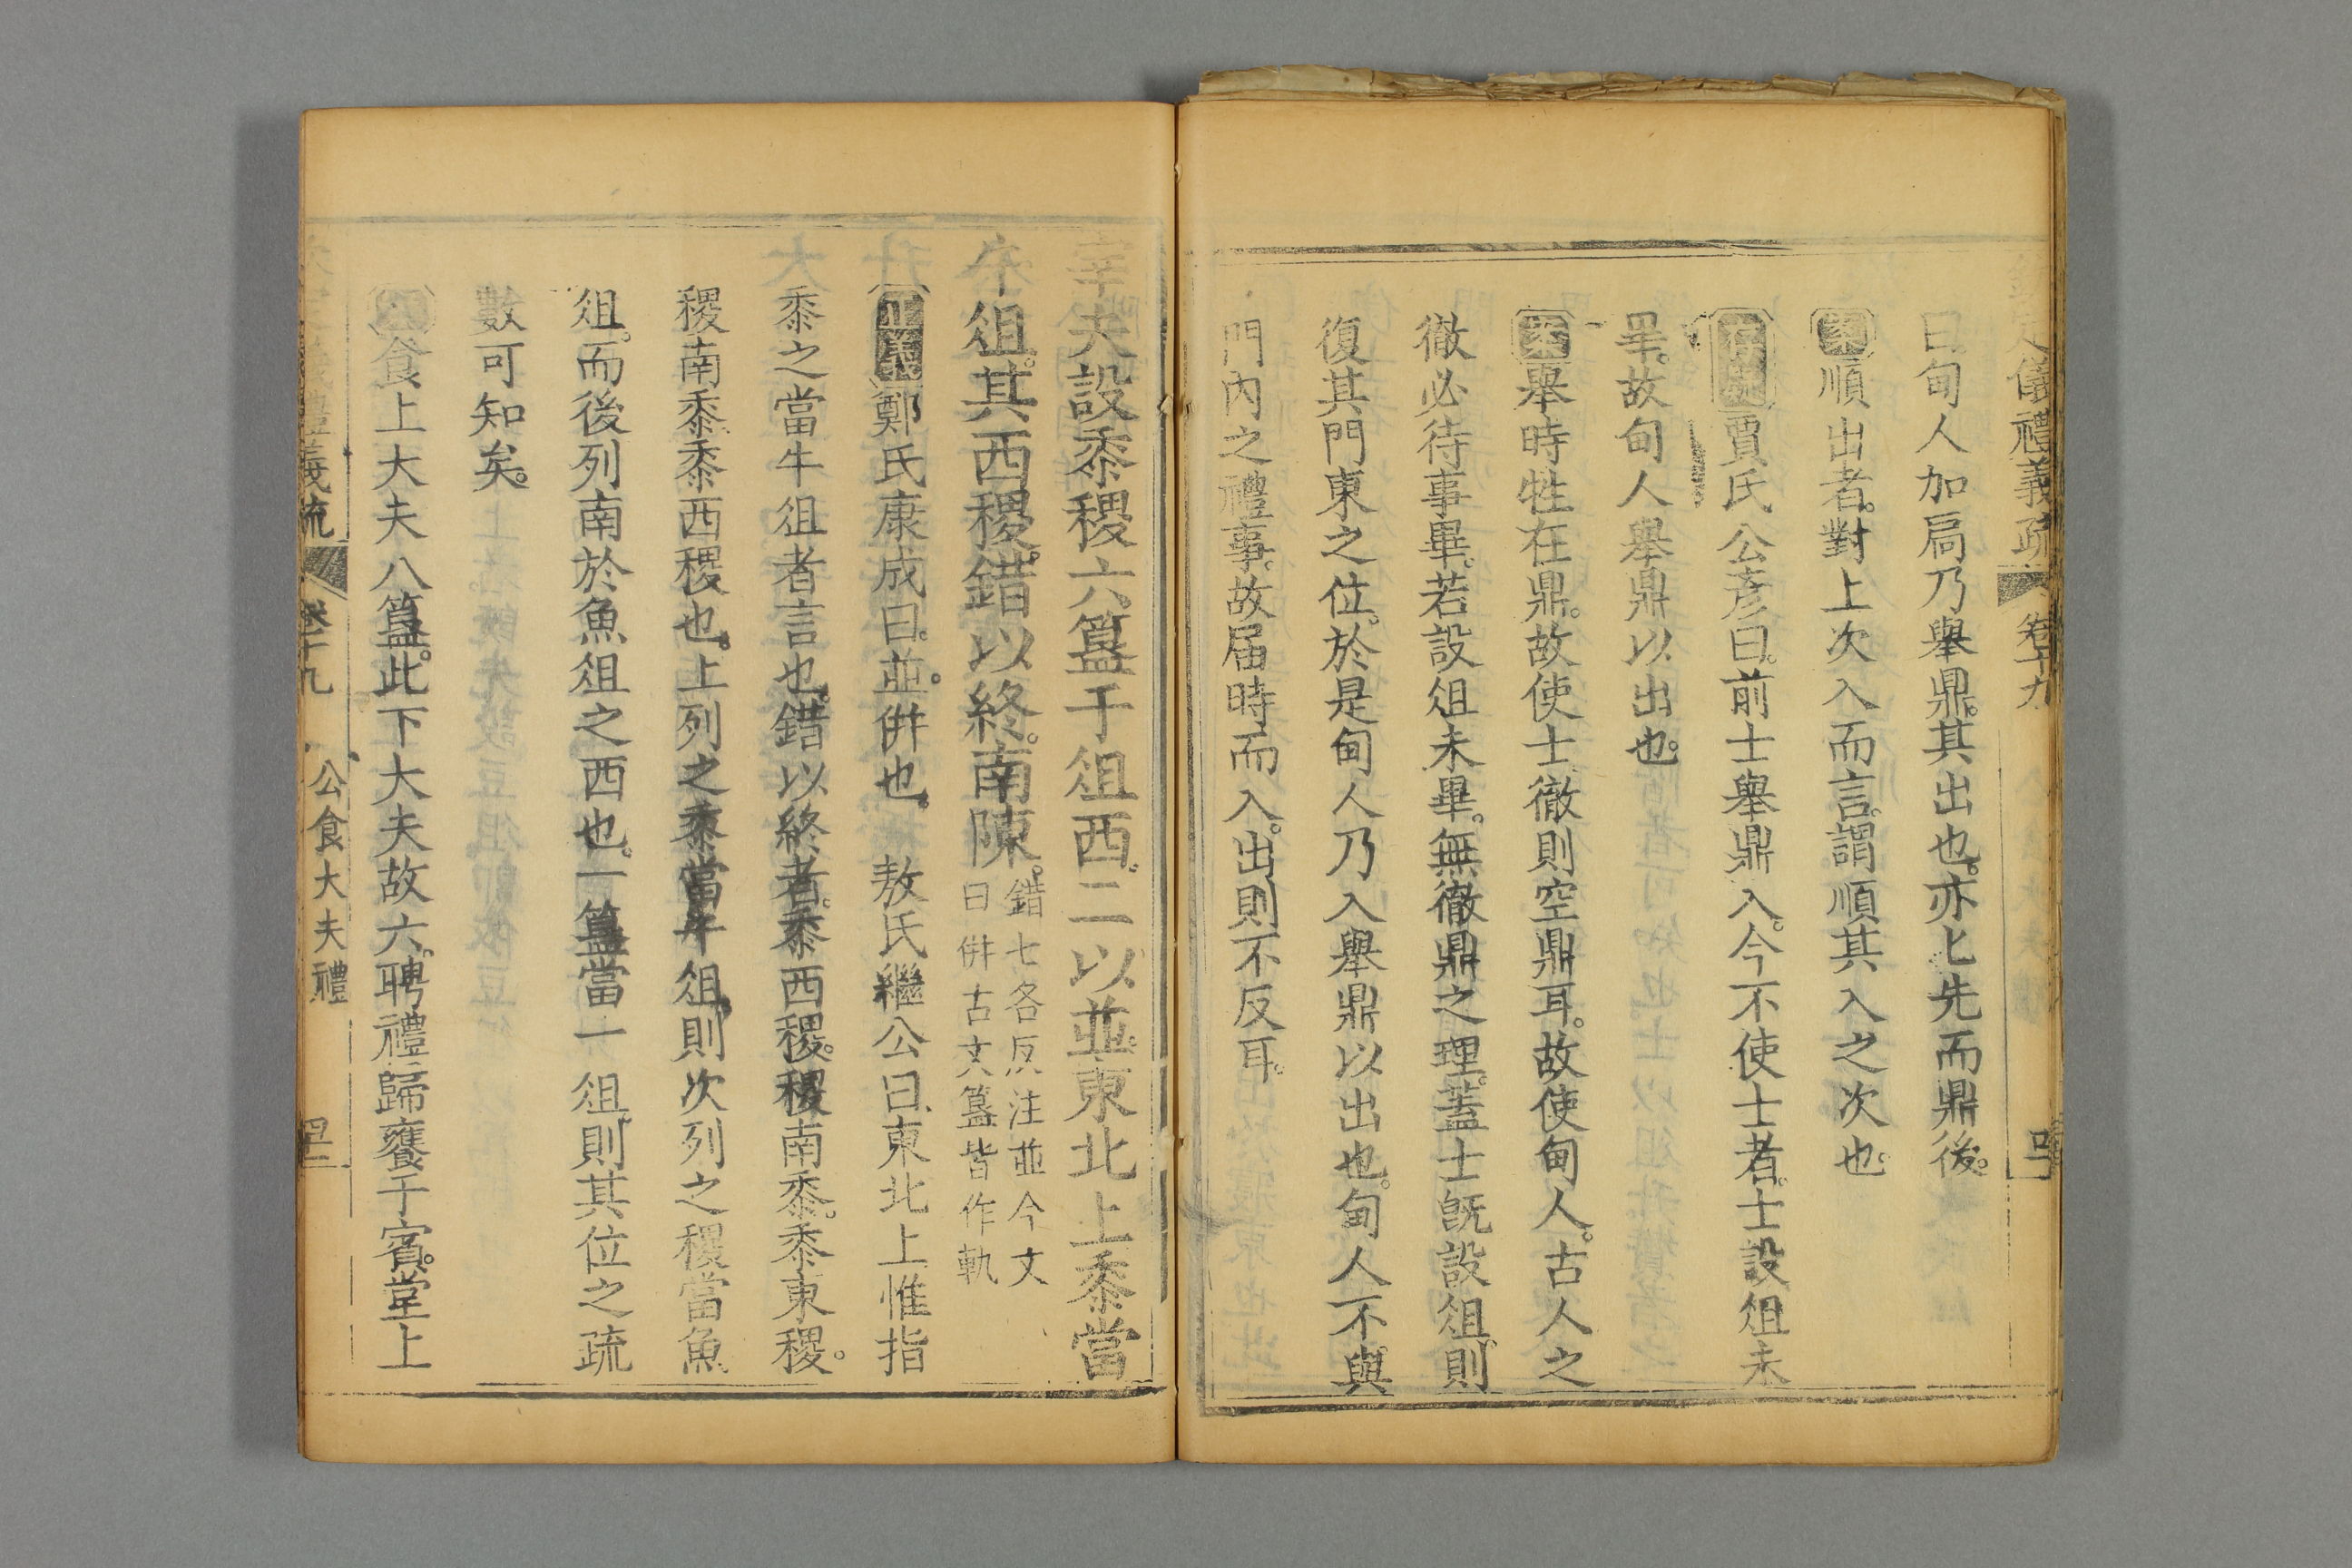 定儀禮義疏 卷十九
曰甸人加扃乃舉鼎。其出也。亦匕先而鼎後。
案順出者。對上次入而言。謂順其入之次也。
存疑賈氏公彥曰。前士舉鼎入。今不使士者。士設俎未
畢。故甸人舉鼎以出也。
案舉時牲在鼎。故使士徹則空鼎耳。故使甸人。古人之
徹必待事畢。若設俎未畢。無徹鼎之理。蓋士旣設俎。則
復其門東之位。於是甸人乃入舉鼎以出也。甸人不與
門內之禮事。故屆時而入。出則不反耳。
宰夫設黍稷六簋于俎西。二以並。東北上。黍當
牛俎。其西稷。錯以終。南陳。錯七各反注並今文
曰併古文簋皆作軌
正義鄭氏康成曰。並。併也。 敖氏繼公曰。東北上惟指
黍之當牛俎者言也。錯以終者。黍西稷。稷南黍。黍東稷。
稷南黍。黍西稷也。上列之黍當牛俎。則次列之稷當魚
俎。而後列南於魚俎之西也。一簋當一俎。則其位之疏
數可知矣。
案食上大夫八簋。此下大夫故六。聘禮歸饔于賓。堂上
禮義疏 卷十九 公食大夫禮 四二